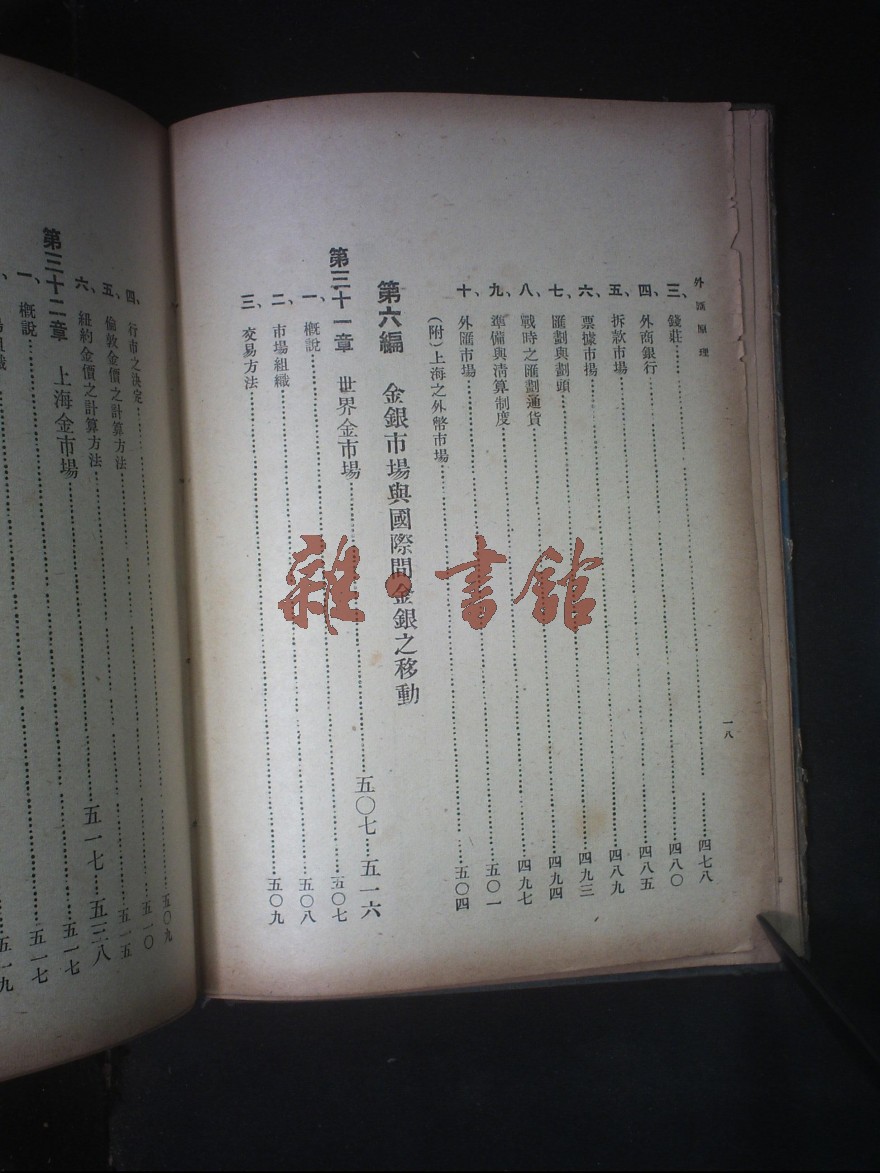 外匯原理
一八
三、錢莊……四七八
四、外商銀行……四八〇
五、拆款市場……四八五
六、票據市場……四八九
七、匯劃與劃頭……四九三
八、戰時之匯劃通貨……四九四
九、準備與清算制度……四九七
十、外匯市場……五〇一
(附)上海之外幣市場……五〇四
第六編 金銀市場與國際間金銀之移動
第三十一章 世界金市場……五〇七—五一六
一、概說……五〇七
二、市場組織……五〇八
三、交易方法……五〇九
四、行市之決定……五〇九
五、倫敦金價之計算方法……五一〇
六、紐約金價之計算方法……五一五
第三十二章 上海金市場……五一七—五三八
一、概說……五一七
場組織……五一七
五一九
雜·書館